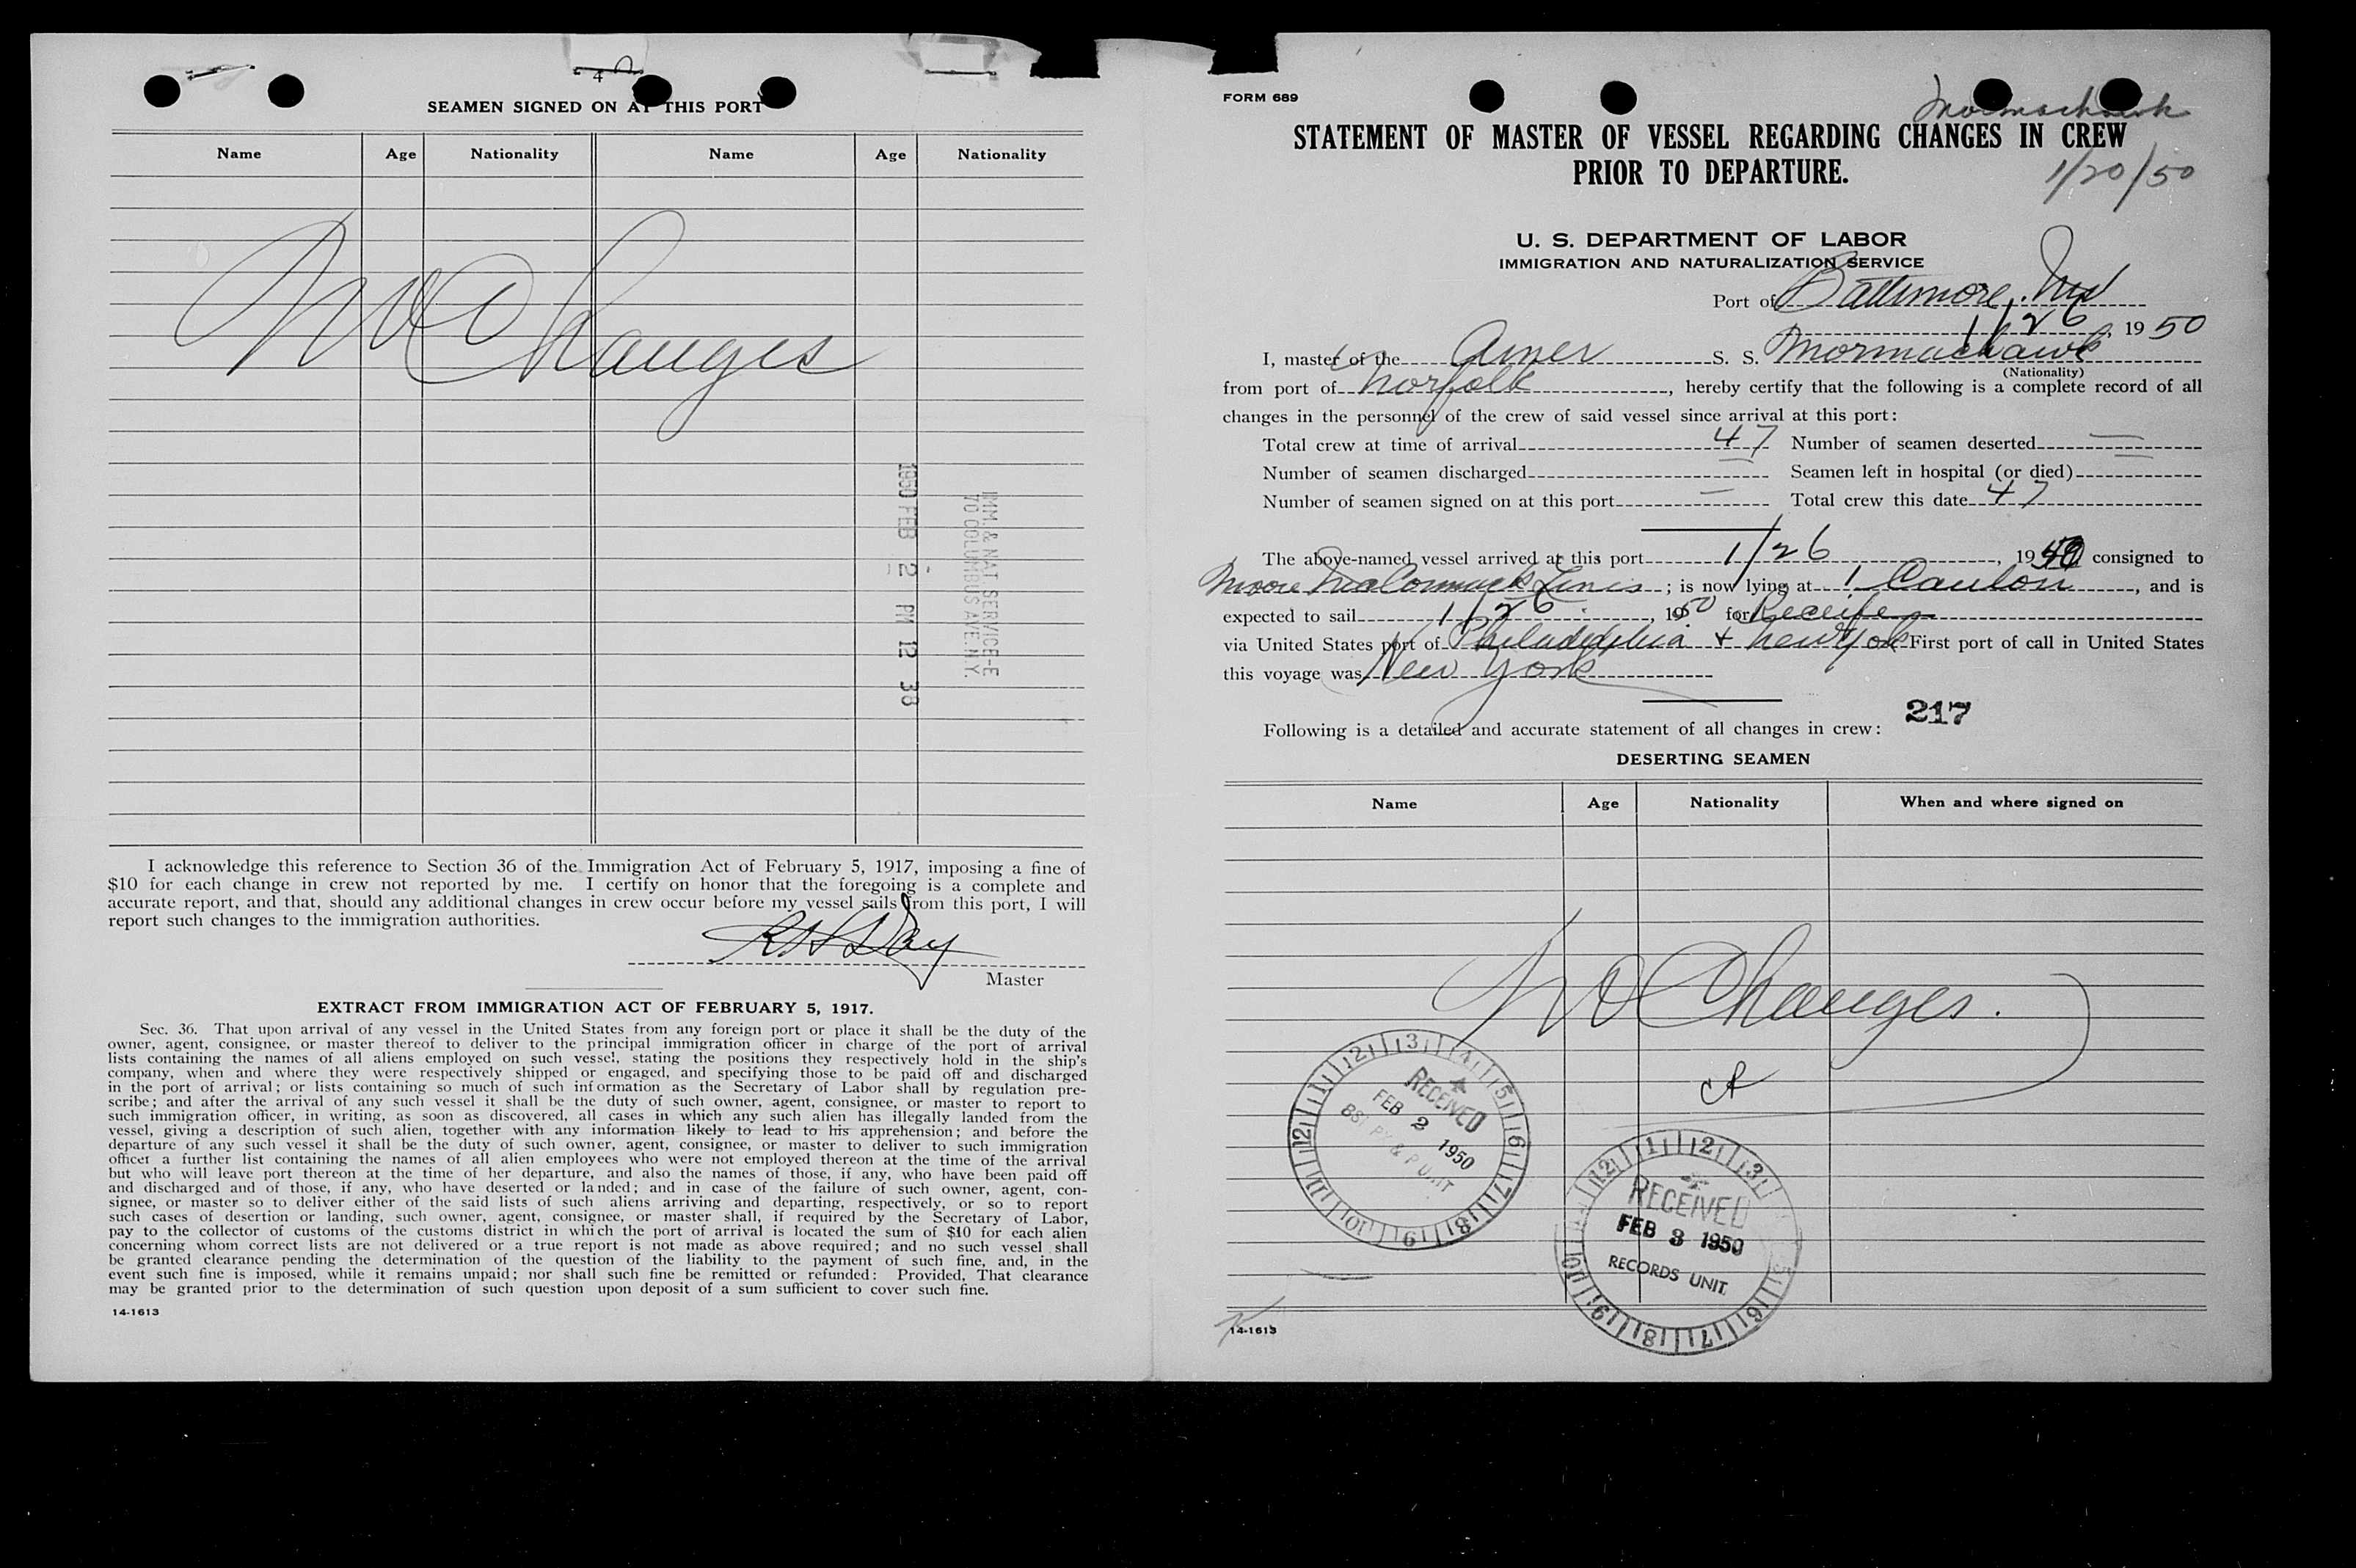 4
SEAMEN SIGNED ON AT THIS PORT
Name Age Nationality Name Age Nationality
No Changes
1950 FEB 2 PM 12 38
IMM. & NAT. SERVICE-E
70 COLUMBUS AVE. N.Y.
I acknowledge this reference to Section 36 of the Immigration Act of February 5, 1917, imposing a fine of
$10 for each change in crew not reported by me. I certify on honor that the foregoing is a complete and
accurate report, and that, should any additional changes in crew occur before my vessel sails from this port, I will
report such changes to the immigration authorities.
Day
Master
EXTRACT FROM IMMIGRATION ACT OF FEBRUARY 5, 1917.
Sec. 36. That upon arrival of any vessel in the United States from any foreign port or place it shall be the duty of the
owner, agent, consignee, or master thereof to deliver to the principal immigration officer in charge of the port of arrival
lists containing the names of all aliens employed on such vessel, stating the positions they respectively hold in the ship's
company, when and where they were respectively shipped or engaged, and specifying those to be paid off and discharged
in the port of arrival; or lists containing so much of such information as the Secretary of Labor shall by regulation pre-
scribe; and after the arrival of any such vessel it shall be the duty of such owner, agent, consignee, or master to report to
such immigration officer, in writing, as soon as discovered, all cases in which any such alien has illegally landed from the
vessel, giving a description of such alien, together with any information likely to lead to his apprehension; and before the
departure of any such vessel it shall be the duty of such owner, agent, consignee, or master to deliver to such immigration
officer a further list containing the names of all alien employees who were not employed thereon at the time of the arrival
but who will leave port thereon at the time of her departure, and also the names of those, if any, who have been paid off
and discharged and of those, if any, who have deserted or landed; and in case of the failure of such owner, agent, con-
signee, or master so to deliver either of the said lists of such aliens arriving and departing, respectively, or so to report
such cases of desertion or landing, such owner, agent, consignee, or master shall, if required by the Secretary of Labor,
pay to the collector of customs of the customs district in which the port of arrival is located the sum of $10 for each alien
concerning whom correct lists are not delivered or a true report is not made as above required; and no such vessel shall
be granted clearance pending the determination of the question of the liability to the payment of such fine, and, in the
event such fine is imposed, while it remains unpaid; nor shall such fine be remitted or refunded: Provided, That clearance
may be granted prior to the determination of such question upon deposit of a sum sufficient to cover such fine.
14-1613
FORM 689
Mormachawk
STATEMENT OF MASTER OF VESSEL REGARDING CHANGES IN CREW
PRIOR TO DEPARTURE.
1/20/50
U. S. DEPARTMENT OF LABOR
IMMIGRATION AND NATURALIZATION SERVICE
Port of Baltimore, Md
1/26, 19 50
I, master of the Amer S. S. Mormachawk
(Nationality)
from port of Norfolk, hereby certify that the following is a complete record of all
changes in the personnel of the crew of said vessel since arrival at this port:
Total crew at time of arrival 47 Number of seamen deserted —
Number of seamen discharged — Seamen left in hospital (or died) —
Number of seamen signed on at this port — Total crew this date 47
The above-named vessel arrived at this port 1/26, 19 50 consigned to
Moore McCormack Lines; is now lying at 1 Canton, and is
expected to sail 1/26, 1950 for Recife
via United States port of Philadelphia + New York First port of call in United States
this voyage was New York
217
Following is a detailed and accurate statement of all changes in crew:
DESERTING SEAMEN
Name Age Nationality When and where signed on
No Changes.
RECEIVED
FEB 2 1950
RECEIVED
FEB 3 1950
RECORDS UNIT
14-1613